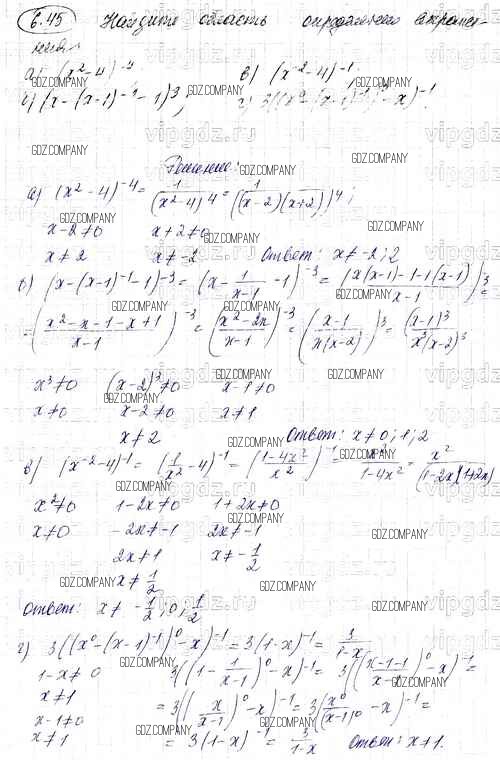 6.45 Найдите область определения выражения:
а) (x²-4)⁻⁴ в) (x⁻²-4)⁻¹
б) (x-(x-1)⁻¹-1)⁻³; г) 3((x⁰-(x-1)⁻¹)⁰-x)⁻¹.
Решение:
а) (x²-4)⁻⁴ = 1/(x²-4)⁴ = 1/((x-2)(x+2))⁴;
x-2≠0 x+2≠0
x≠2 x≠-2 Ответ: x≠-2; 2
б) (x-(x-1)⁻¹-1)⁻³ = (x - 1/(x-1) - 1)⁻³ = ((x(x-1)-1-1(x-1))/(x-1))⁻³ =
= ((x²-x-1-x+1)/(x-1))⁻³ = ((x²-2x)/(x-1))⁻³ = ((x-1)/(x(x-2)))³ = (x-1)³/(x³(x-2)³)
x³≠0 (x-2)³≠0 x-1≠0
x≠0 x-2≠0 x≠1
x≠2 Ответ: x≠0; 1; 2
в) (x⁻²-4)⁻¹ = (1/x² - 4)⁻¹ = ((1-4x²)/x²)⁻¹ = x²/(1-4x²) = x²/((1-2x)(1+2x))
x²≠0 1-2x≠0 1+2x≠0
x≠0 -2x≠-1 2x≠-1
2x≠1 x≠-1/2
x≠1/2
Ответ: x≠ -1/2; 0; 1/2
г) 3((x⁰-(x-1)⁻¹)⁰-x)⁻¹ = 3(1-x)⁻¹ = 3/(1-x)
1-x≠0 3((1 - 1/(x-1))⁰-x)⁻¹ = 3(((x-1-1)/(x-1))⁰-x)⁻¹ =
x≠1
x-1≠0 = 3((x/(x-1))⁰-x)⁻¹ = 3(x⁰/(x-1)⁰ - x)⁻¹ =
x≠1 = 3(1-x)⁻¹ = 3/(1-x) Ответ: x≠1.